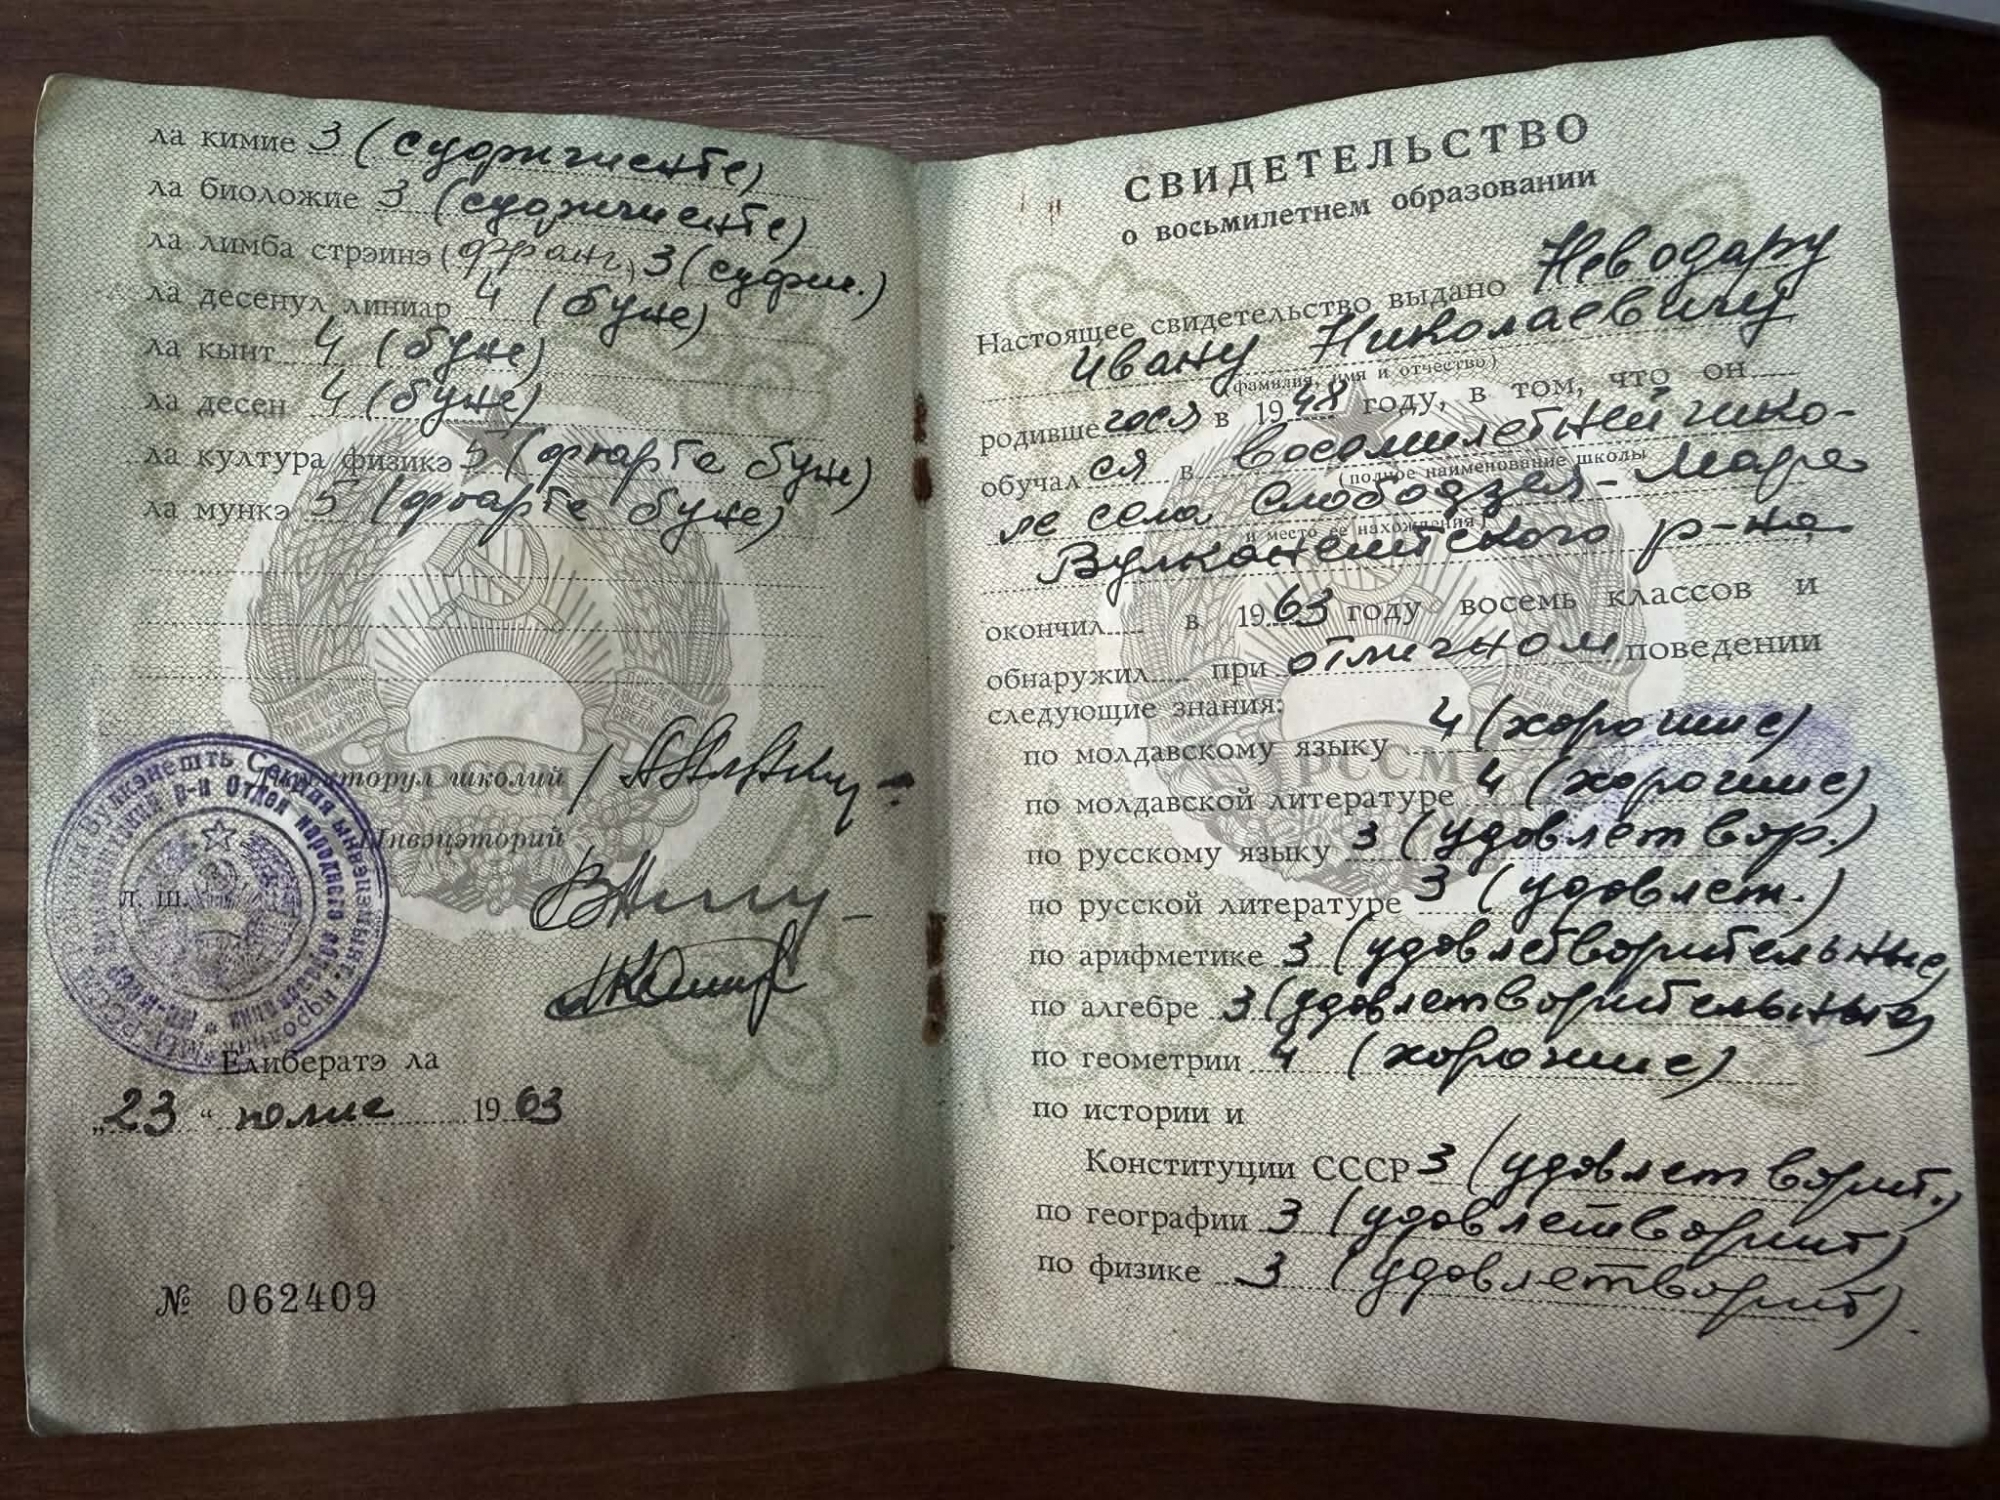 ла кимие 3 (суфичиенте)
ла биоложие 3 (суфичиенте)
ла лимба стрэинэ (франч.) 3 (суфич.)
ла десенул линиар 4 (буне)
ла кынт 4 (буне)
ла десен 4 (буне)
ла култура физикэ 5 (фоарте буне)
ла мункэ 5 (фоарте буне)
РССМ
Директорул школий
Ынвэцэторий
Л. Ш.
Елибератэ ла
„23“ юлие 1963
№ 062409
СВИДЕТЕЛЬСТВО
о восьмилетнем образовании
Настоящее свидетельство выдано Неводару
Ивану Николаевичу
(фамилия, имя и отчество)
родившегося в 1948 году, в том, что он
обучался в восьмилетней шко-
(полное наименование школы
ле села Слободзея-Маре
и место её нахождения)
Вулканештского р-на
окончил в 1963 году восемь классов и
обнаружил при отличном поведении
следующие знания:
по молдавскому языку 4 (хорошие)
РССМ
по молдавской литературе 4 (хорошие)
по русскому языку 3 (удовлетвор.)
по русской литературе 3 (удовлет.)
по арифметике 3 (удовлетворительные)
по алгебре 3 (удовлетворительные)
по геометрии 4 (хорошие)
по истории и
Конституции СССР 3 (удовлетворит.)
по географии 3 (удовлетворит)
по физике 3 (удовлетворит)